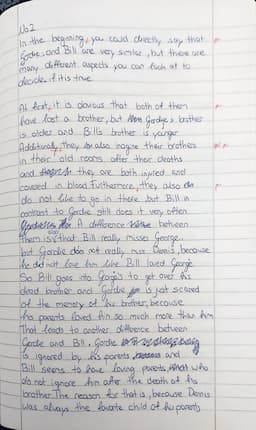 No 2
In the beginning, you could directly say that
Gordie and Bill are very similar, but there are
many different aspects you can look at to
decide if it is true.
At first, it is obvious that both of them
have lost a brother, but Gordie's brother
is older and Bill's brother is younger
Additionally, they also imagine their brothers
in their old rooms after their deaths
and they are both injured and
covered in blood. Furthermore, they also
do not like to go in there but Bill in
contrast to Gordie still does it very often
A difference between
them is that Bill really misses George
but Gordie does not really miss Dennis, because
he did not love him like Bill loved George
So Bill goes into George's to get over his
dead brother and Gordie is just scared
of the memory of his brother, because
his parents loved him so much more than him
That leads to another difference between
Gordie and Bill, Gordie
is ignored by his parents and
Bill seems to have loving parents who
do not ignore him after the death of his
brother. The reason for that is, because Dennis
was always the favorite child of his parents